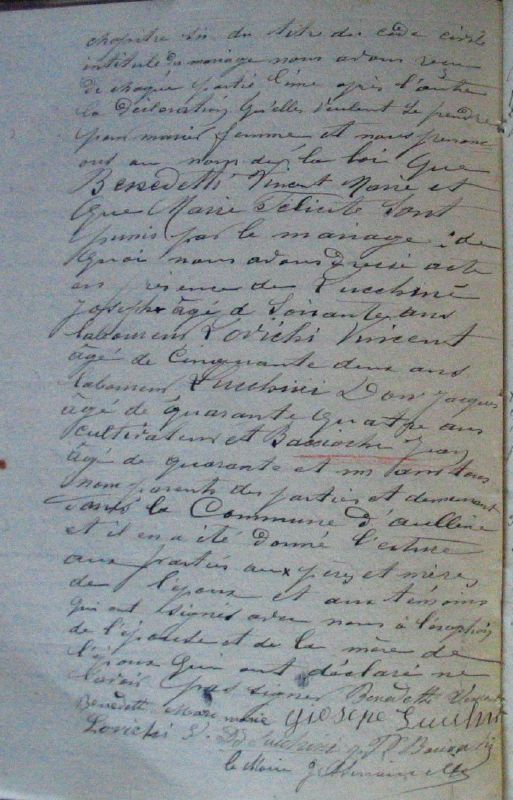 chapitre six du titre du code civil
intitulé du mariage nous avons reçu
de chaque partie l'une après l'autre
la déclaration qu'elles veulent se prendre
pour mari et femme et nous prononc
ons au nom de la loi que
Benedetti Vincent Marie et
que Marie Félicité sont
unis par le mariage de
quoi nous avons dressé acte
en présence de Lucchini
Joseph âgé de soixante ans
laboureur Lovichi Vincent
âgé de cinquante deux ans
laboureur Lucchini Don Jacques
âgé de quarante quatre ans
cultivateur et Jean
âgé de quarante et un ans tous
non parents des parties et demeurant
dans la Commune d'aullène
et il en a été donné lecture
aux parties aux pères et mères
de l'époux et aux témoins
qui ont signés avec nous à l'exception
de l'épouse et de la mère de
l'époux qui ont déclaré ne
savoir pas signer Benedetti Vincent
Benedetti giosepe Lucchini
Lovichi Lucchini
le Maire